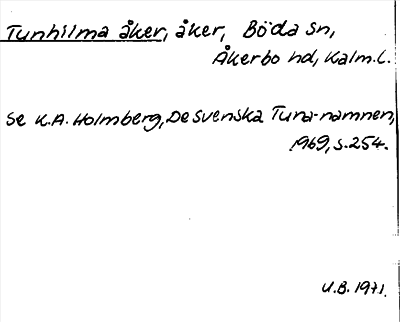 Tunhilma åker, åker, Böda sn,
Åkerbo hd, Kalm.l.
Se K.A. Holmberg, De svenska Tuna-namnen,
1969, s. 254.
U.B. 1971.